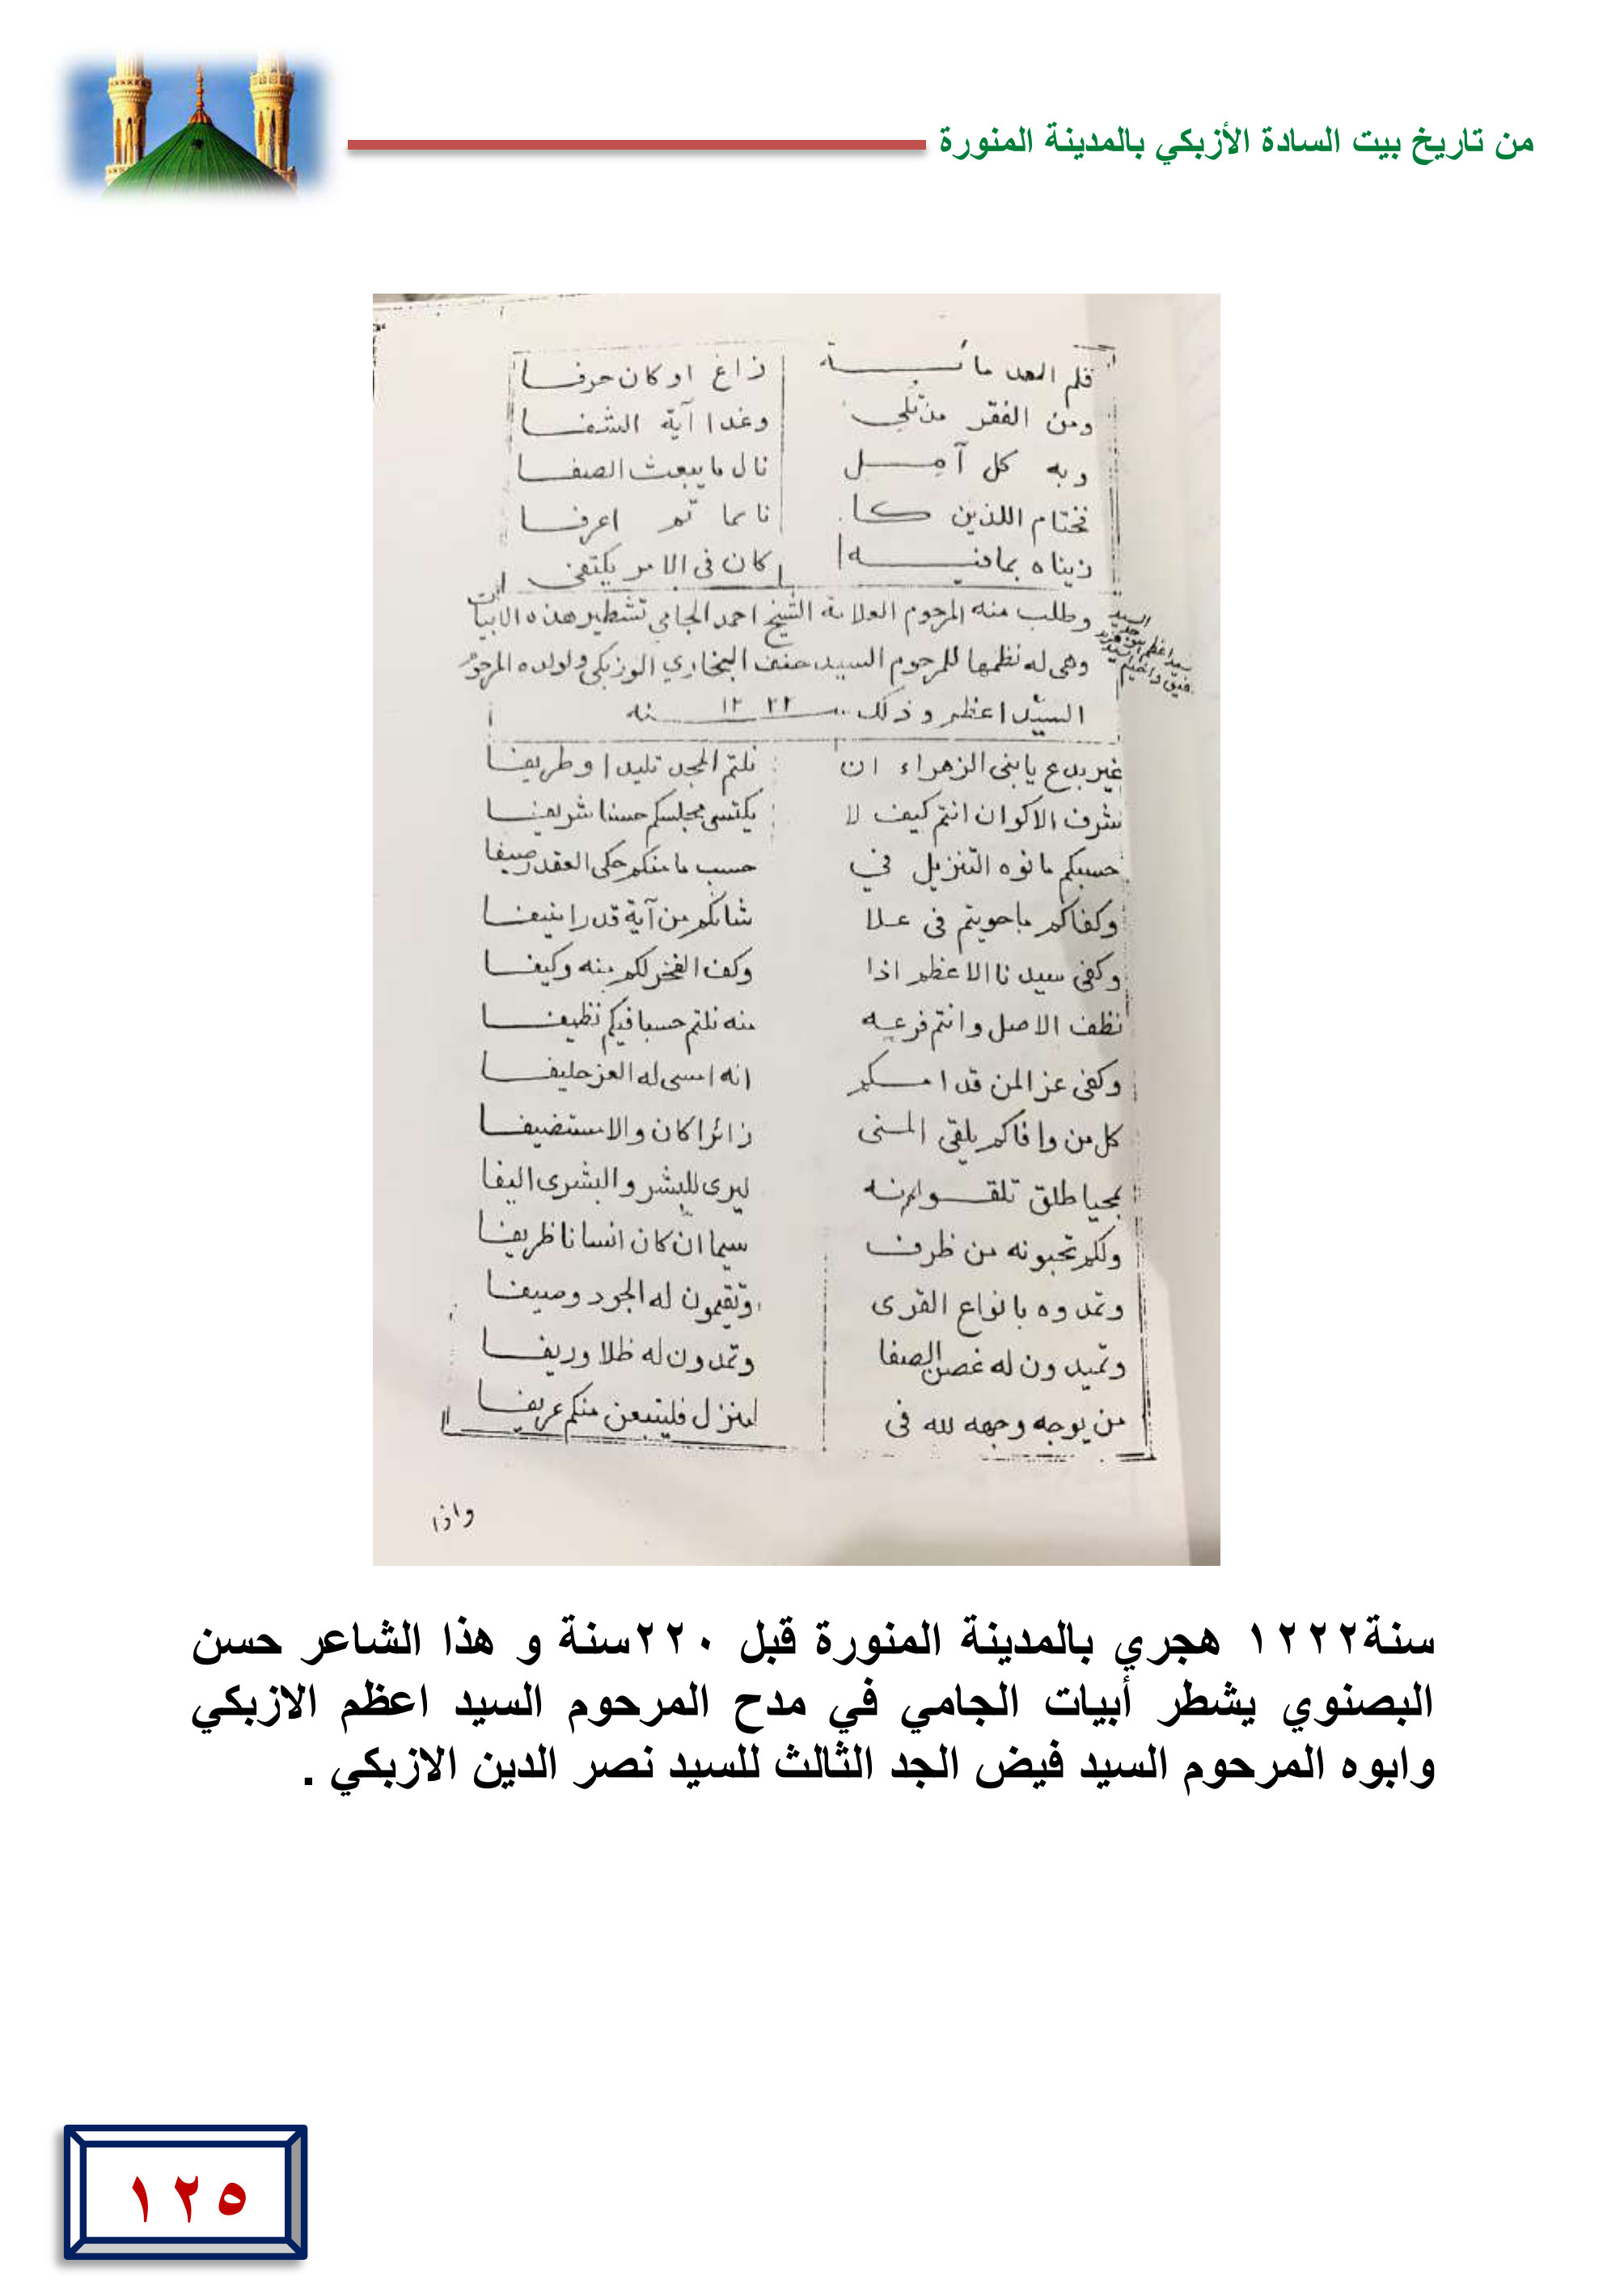 من تاريخ بيت السادة الأزبكي بالمدينة المنورة
قلم العبد ما زاغ او كان حرفا
ومن الفقر وغدا آية الشفا
وبه كل آمل نال ما يبعث الصفا
فختام اللذين كا نا بما تم اعرفا
زيناه بما فيه كان في الامر يكتفى
وطلب منه المرحوم العلامة الشيخ احمد الجامي تشطير هذه الابيات
وهى له نظمها للمرحوم السيد البخاري الوزبكي ولولده المرحوم
السيد اعظم وذلك سنه ١٢٢٢
السيد
غير بدع يا بنى الزهراء ان نلتم المجد تليدا وطريفا
شرف الاكوان انتم كيف لا يكتسى مجلسكم حسنا شريفا
حسبكم ما نوه التنزيل في حسب ما منكم حكى العقد رصيفا
وكفاكم ما حويتم فى علا شانكم من آية قدرا منيفا
وكفى سيدنا الاعظم اذا وكف الفخر لكم منه وكيفا
نظف الاصل وانتم فرعه منه نلتم حسبا فيكم نظيفا
وكفى عز المن قد امكم انه امسى له العز حليفا
كل من وافاكم يلقى المنى زائرا كان والا مستضيفا
بمحيا طلق تلقونه ليرى للبشر والبشرى اليفا
ولكم تحبونه من ظرف سيما ان كان انسانا ظريفا
وتمدوه بانواع القرى وتقيمون له الجود وصيفا
وتميدون له غصن الصفا وتمدون له ظلا وريفا
من يوجه وجهه لله فى منزل فليتبعن منكم عريفا
واذا
سنة١٢٢٢ هجري بالمدينة المنورة قبل ٢٢٠سنة و هذا الشاعر حسن
البصنوي يشطر أبيات الجامي في مدح المرحوم السيد اعظم الازبكي
وابوه المرحوم السيد فيض الجد الثالث للسيد نصر الدين الازبكي .
١٢٥